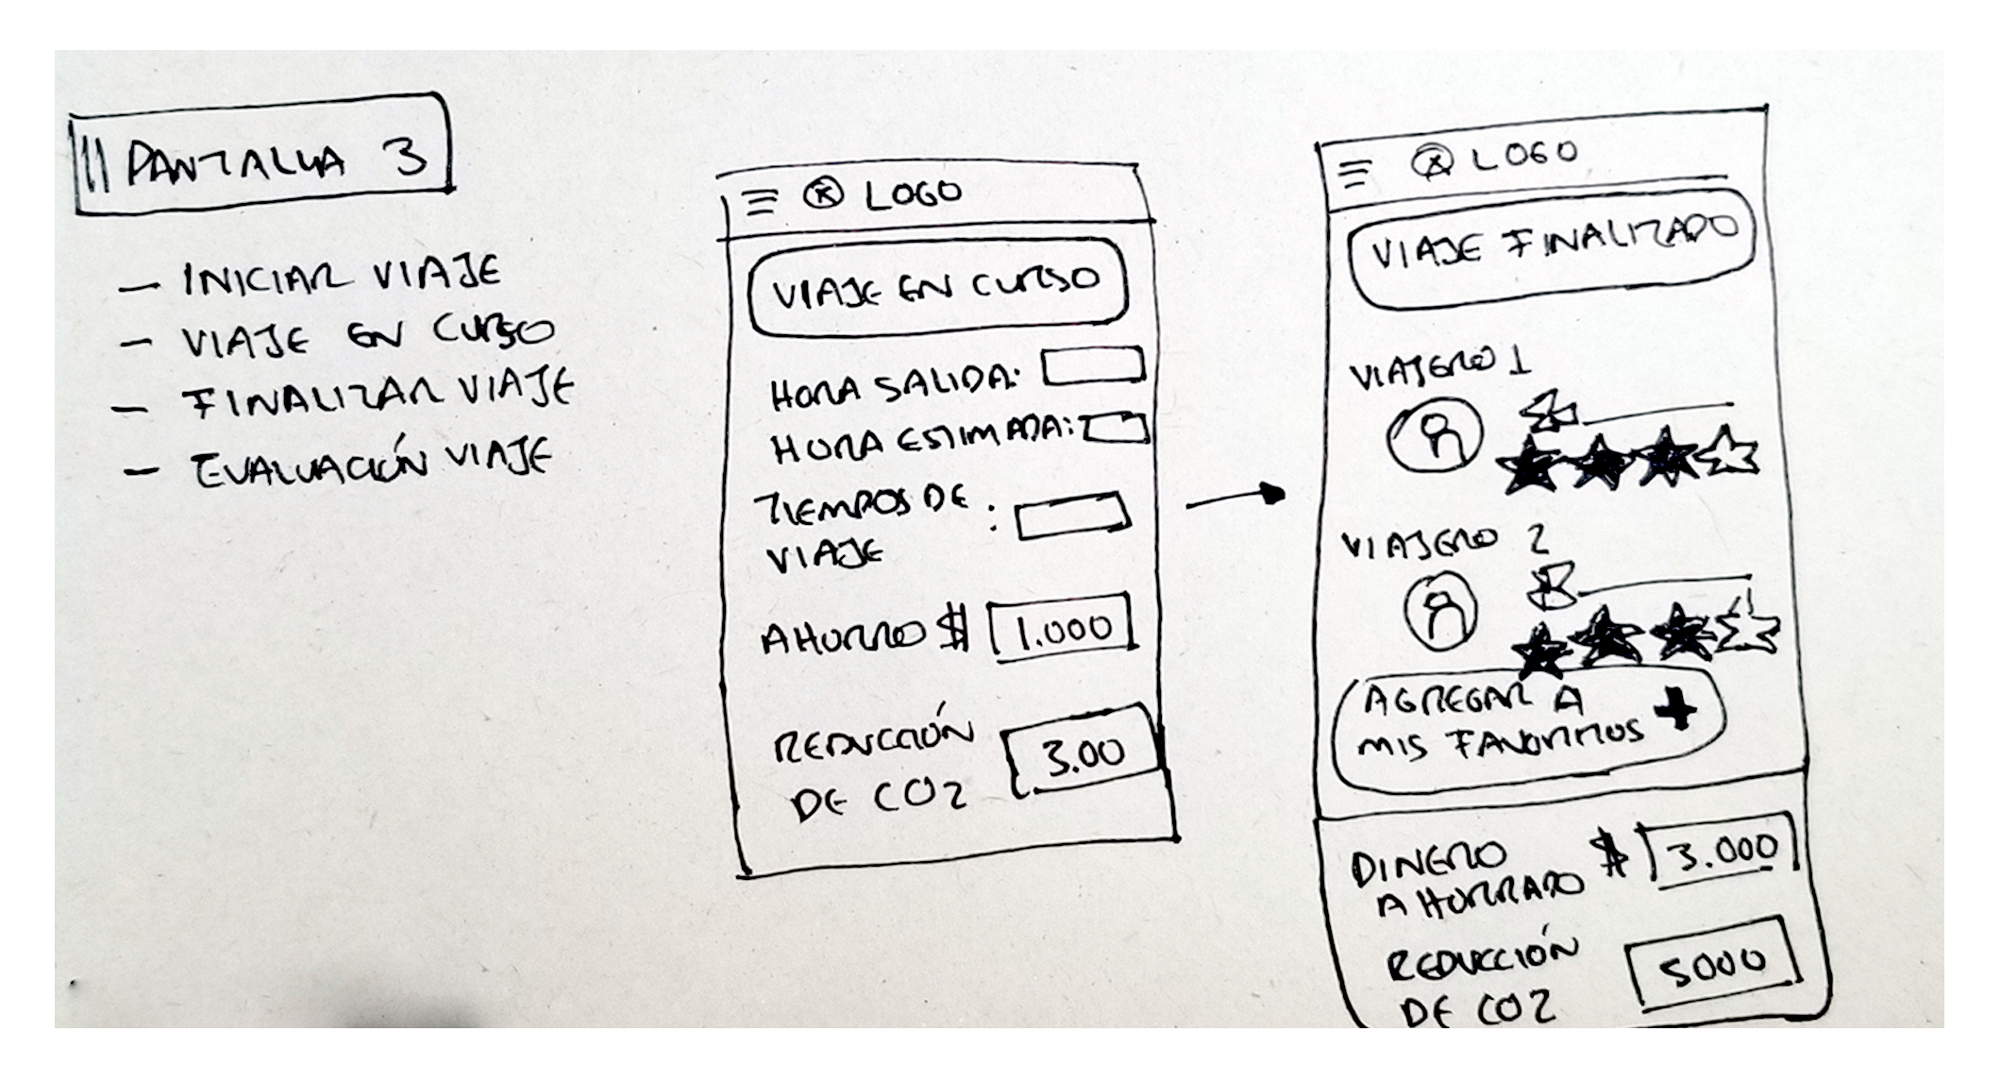 PANTALLA 3
- INICIAR VIAJE
- VIAJE EN CURSO
- FINALIZAR VIAJE
- EVALUACIÓN VIAJE
LOGO
VIAJE EN CURSO
HORA SALIDA:
HORA ESTIMADA:
TIEMPOS DE :
VIAJE
AHORRO $ 1.000
REDUCCIÓN
DE CO2
3.00
LOGO
VIAJE FINALIZADO
VIAJERO 1
VIAJERO 2
AGREGAR A
MIS FAVORITOS +
DINERO
AHORRADO
$ 3.000
REDUCCIÓN
DE CO2
5000